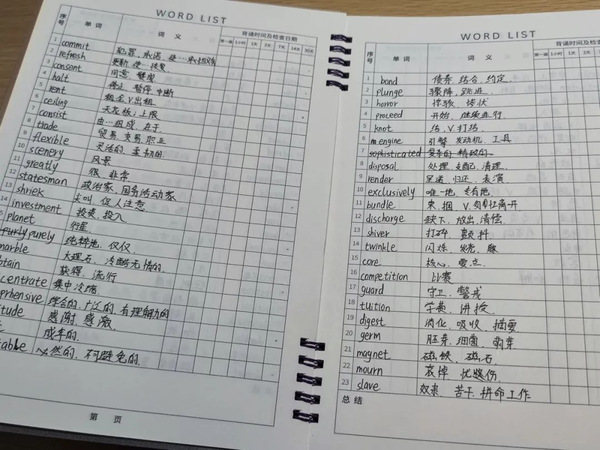 WORD LIST
序号 单词 词义 背诵时间及检查日期
第一遍 1小时 1天 2天 7天 14天 30天
commit 犯罪,承诺
refresh 更新
consent 同意 赞成
halt 停止 暂停 中断
rent 租金 v.出租
ceiling 天花板,上限
consist 由…组成 在于
trade 贸易 交易 职业
flexible 灵活的
scenery 风景
greatly 很 非常
statesman 政治家,国务活动家
shriek 尖叫 促人注意
investment 投资 投入
planet 行星
purely 纯粹地,仅仅
marble 大理石 冷酷无情的
btain 获得 流行
centrate 集中 浓缩
prehensive 综合的 广泛的 有理解力的
itude 感谢 感激
成本的
table 必然的,不可避免的
第 页
WORD LIST
序号 单词 词义 背诵时间及检查日期
第一遍 1小时 1天 2天 7天
1 bond 债券,结合,约定
2 plunge 骤降,跳进
3 horror
4 proceed 开始,继续进行
5 knot 结,v.打结
6 engine 引擎 发动机 工具
7 sophisticated 复杂的 精致的
8 disposal 处理 支配 清理
9 render 呈递 归还 表演
10 exclusively 唯一地,专有地
11 bundle 束 捆
12 discharge 放出,清偿
13 shiver 打碎,颤抖
14 twinkle 闪烁
15 core 核心,要点
16 competition 比赛
17 guard 守卫,警戒
18 tuition 学费,讲授
19 digest 消化,吸收,摘要
20 germ 胚芽,细菌,萌芽
21 magnet 磁铁,磁石
22 mourn 哀悼,忧伤
23 slave 奴隶 苦干 拼命工作
总结